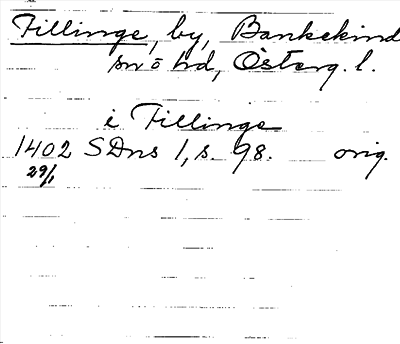 Fillinge, by, Bankekind
sn o hd, Österg. l.
i Fillinge
1402 SDns 1, s. 98. orig.
29/1